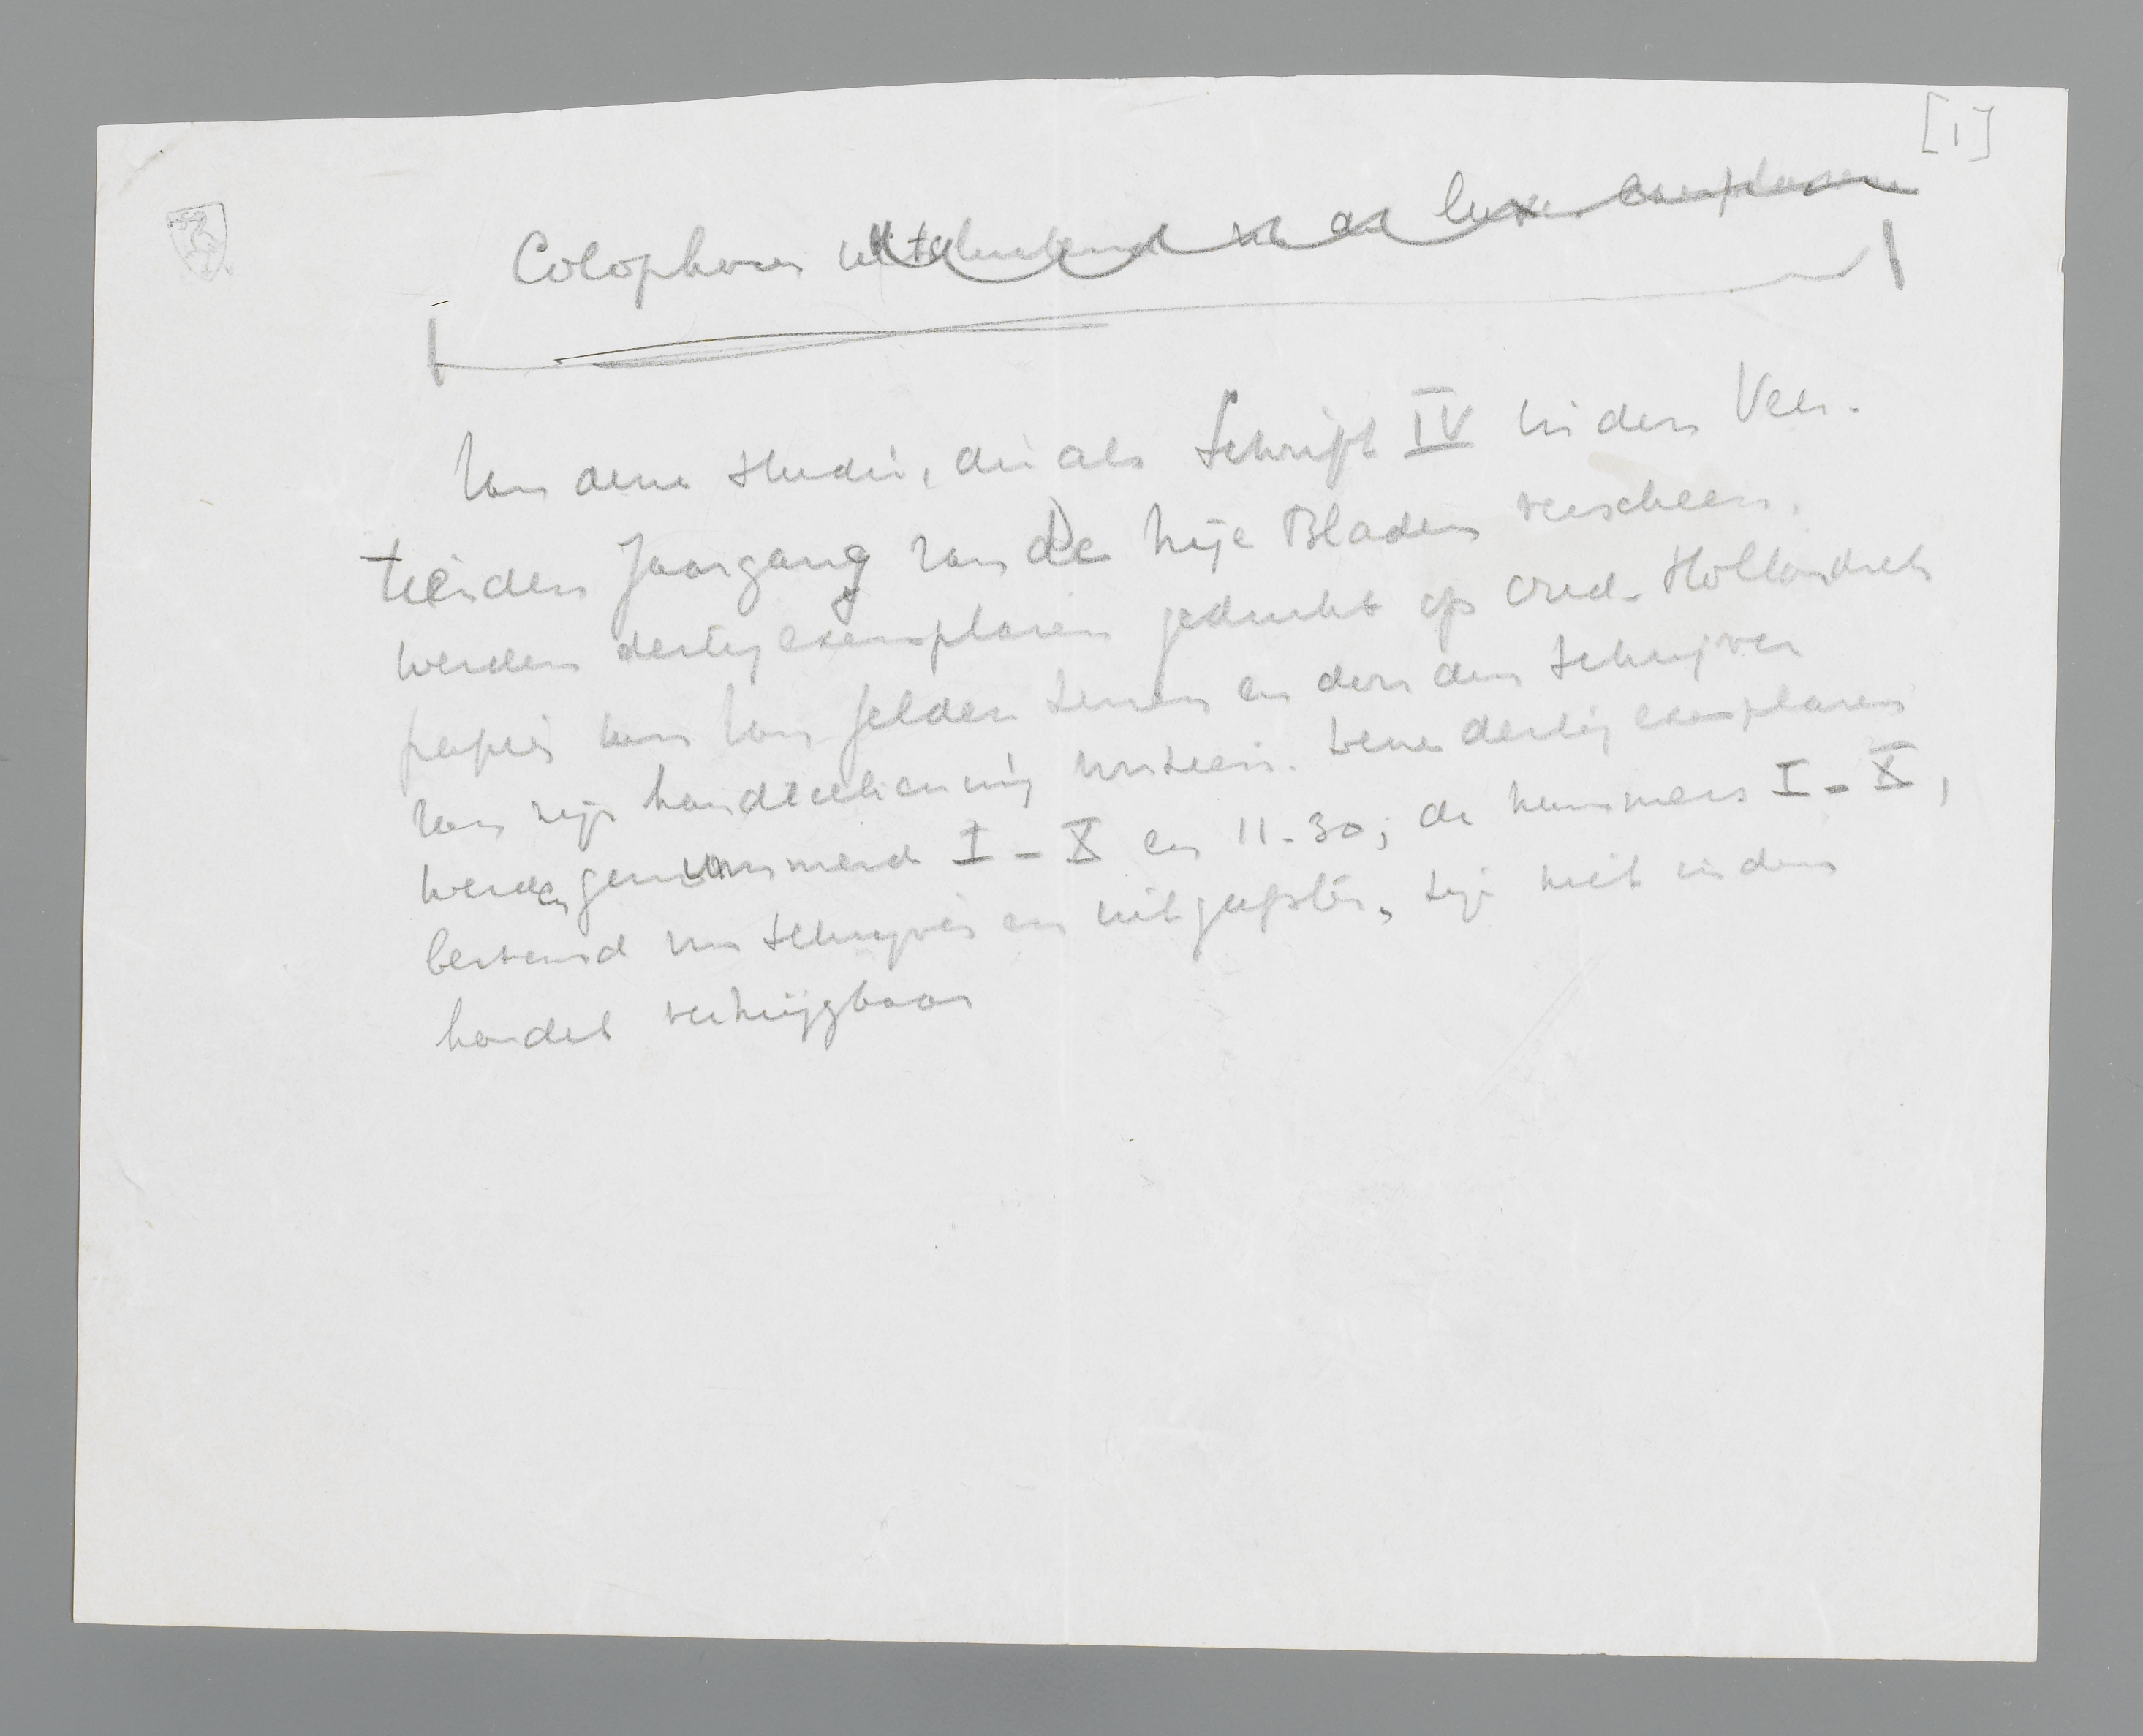 [1]
Colophon uitsluitend in de luxe exemplaren
Van deze studie, die als Schrift IV in den Veer-
tienden Jaargang van De Vrije Bladen verscheen,
werden dertig exemplaren gedrukt op Oud-Hollandsch
papier van Van Gelder Zonen en door den schrijver
van zijn handteekening voorzien. Deze dertig exemplaren
werden genummerd I - X en 11-30; de nummers I - X,
bestemd voor schrijver en uitgeefster, zijn niet in den
handel verkrijgbaar